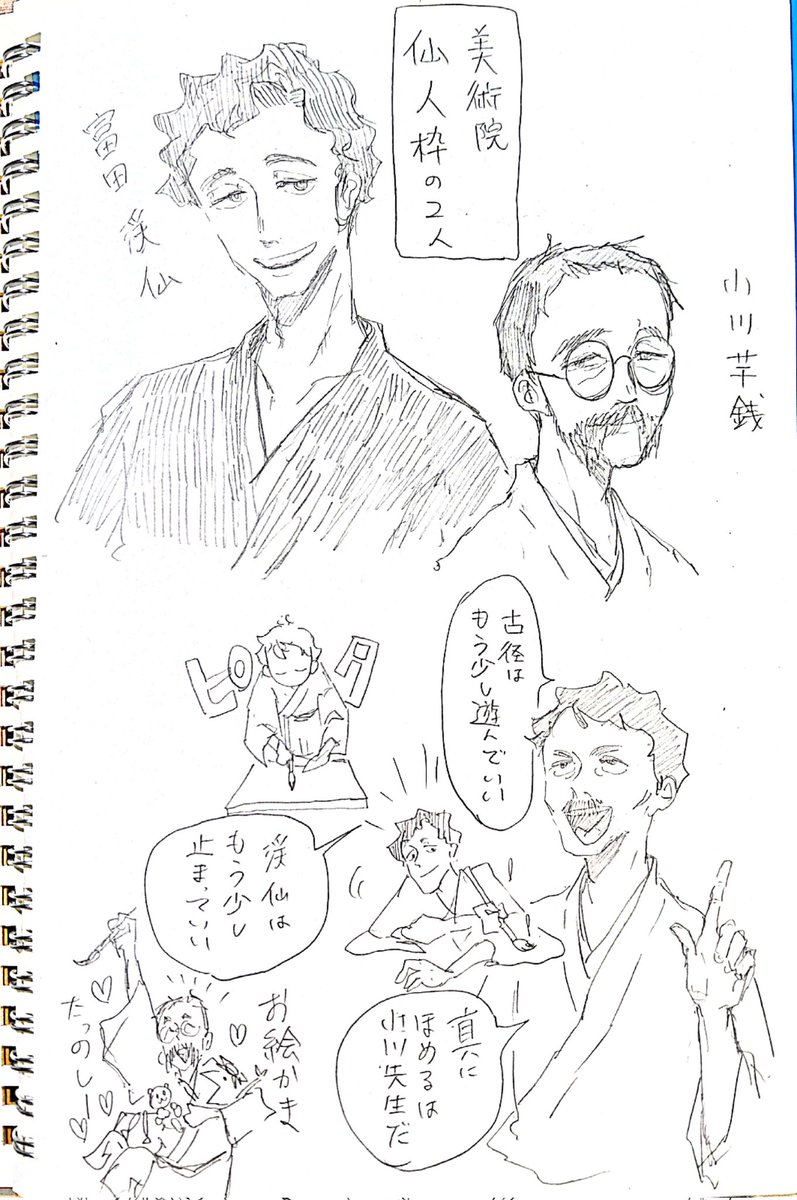 美術院
仙人枠の2人
富田
渓仙
小川芋銭
古径は
もう少し遊んでいい
ピタ
渓仙は
もう少し
止まっていい
真に
ほめるは
小川先生だ
お絵かき
たっのしー